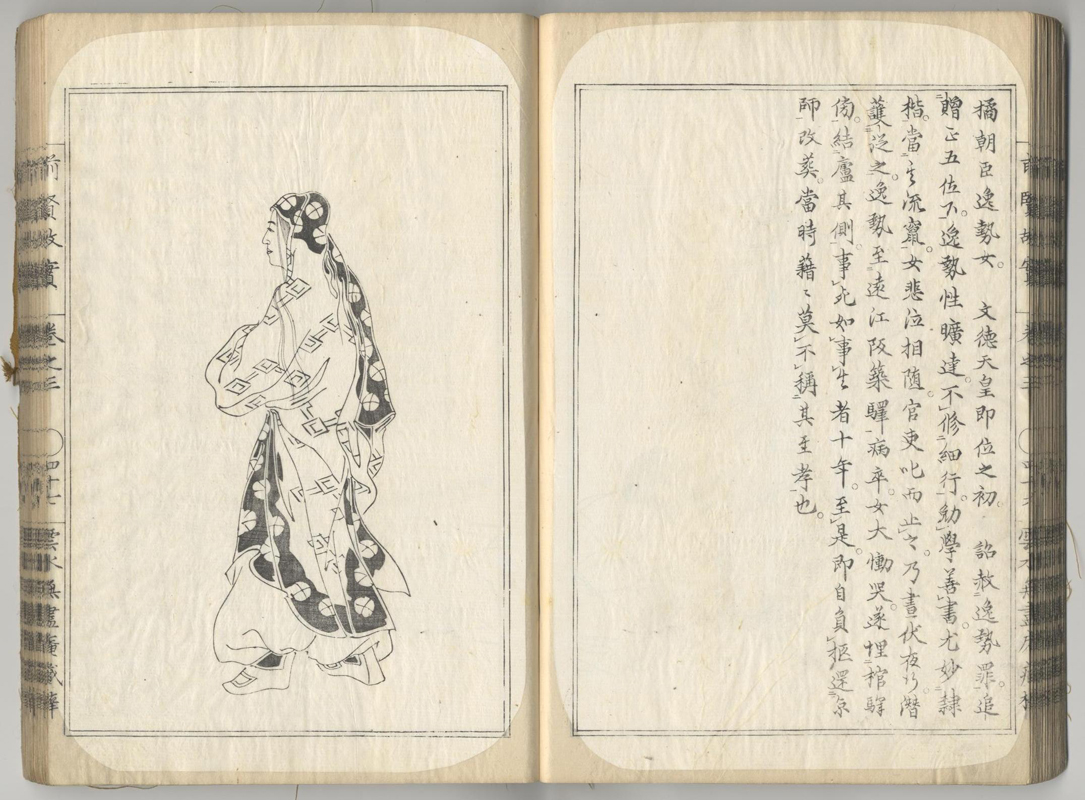 橘朝臣逸勢女 文德天皇即位之初 詔赦逸勢罪追
贈正五位下逸勢性曠達不修細行幼學善書尤妙隷
楷當其流竄女悲泣相随官吏叱而止之乃晝伏夜行潜
護送之逸勢至遠江阪築驛病卒女大慟哭遂埋棺驛
傍結廬其側事死如事生者十年至是即自負柩還京
師改葬當時藉〻莫不稱其至孝也
前賢故實 卷之三 四十七 雲水無盡庵藏梓
前賢故實 卷之三